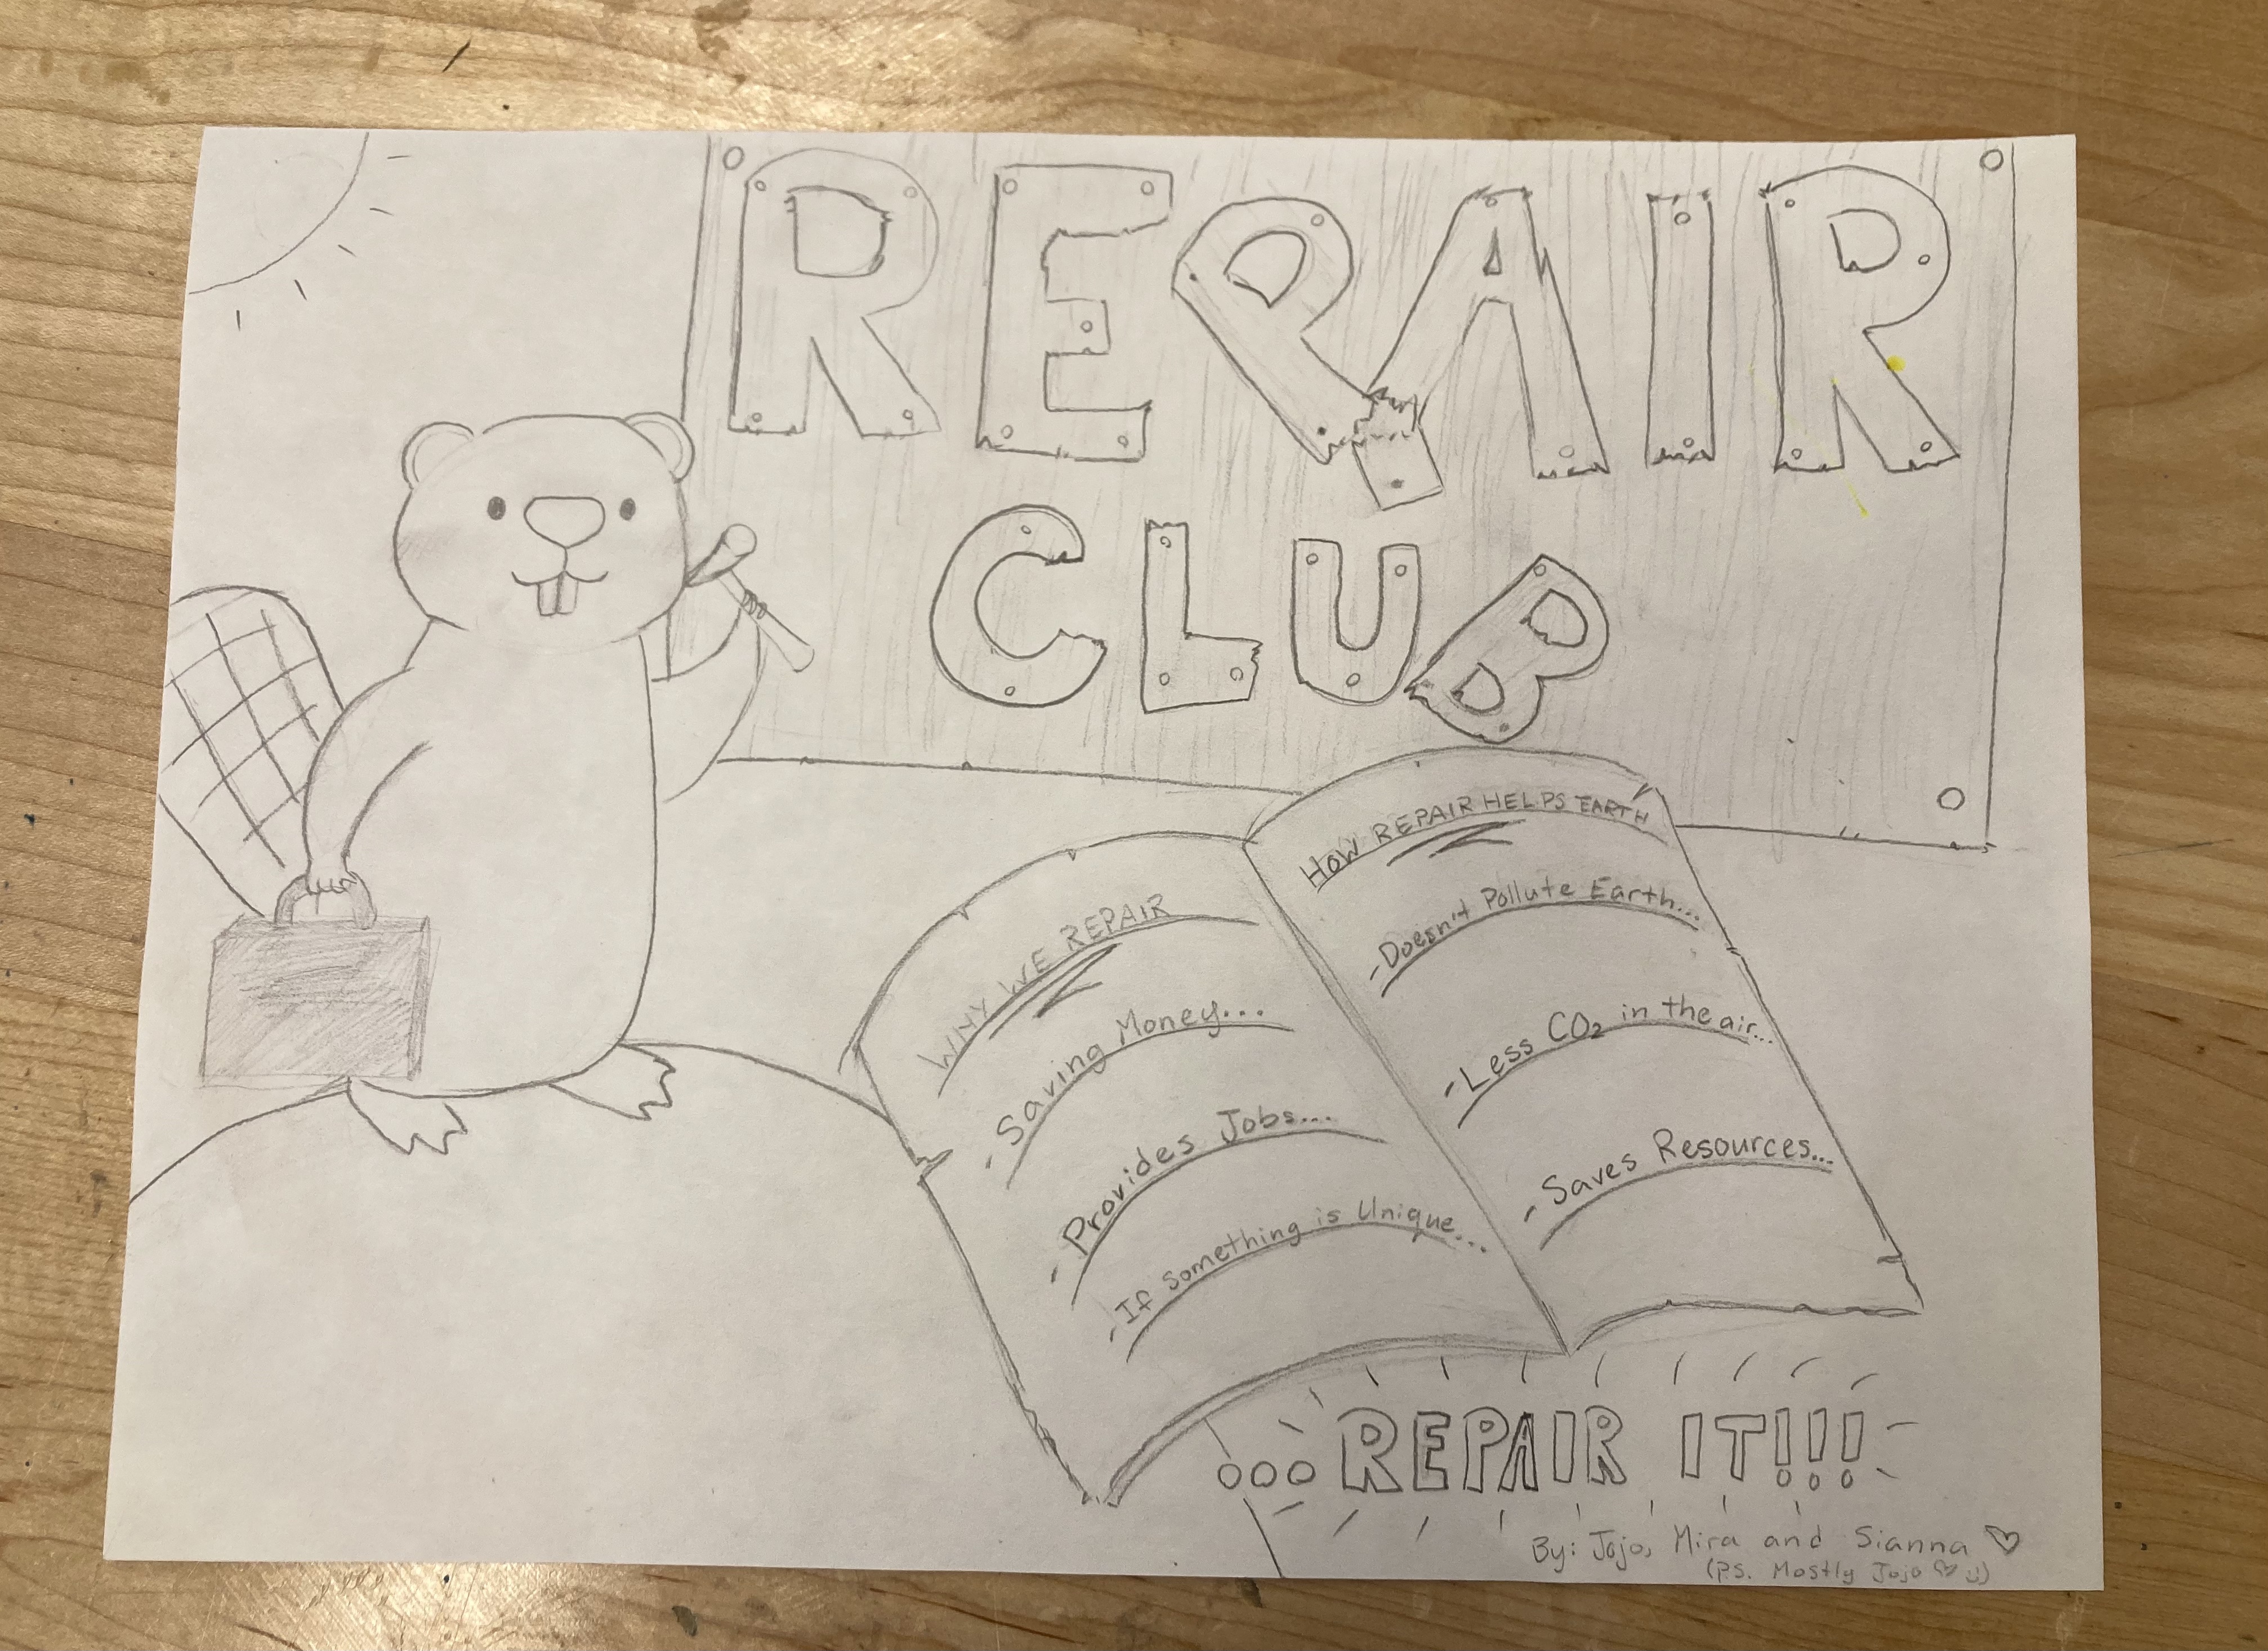 REPAIR
CLUB
WHY WE REPAIR
- Saving Money...
- Provides Jobs...
- If Something is Unique...
HOW REPAIR HELPS EARTH
- Doesn't Pollute Earth...
- Less CO₂ in the air...
- Saves Resources...
...REPAIR IT!!!
By: Jojo, Mira and Sianna ♡
(PS. Mostly Jojo ♡ :))